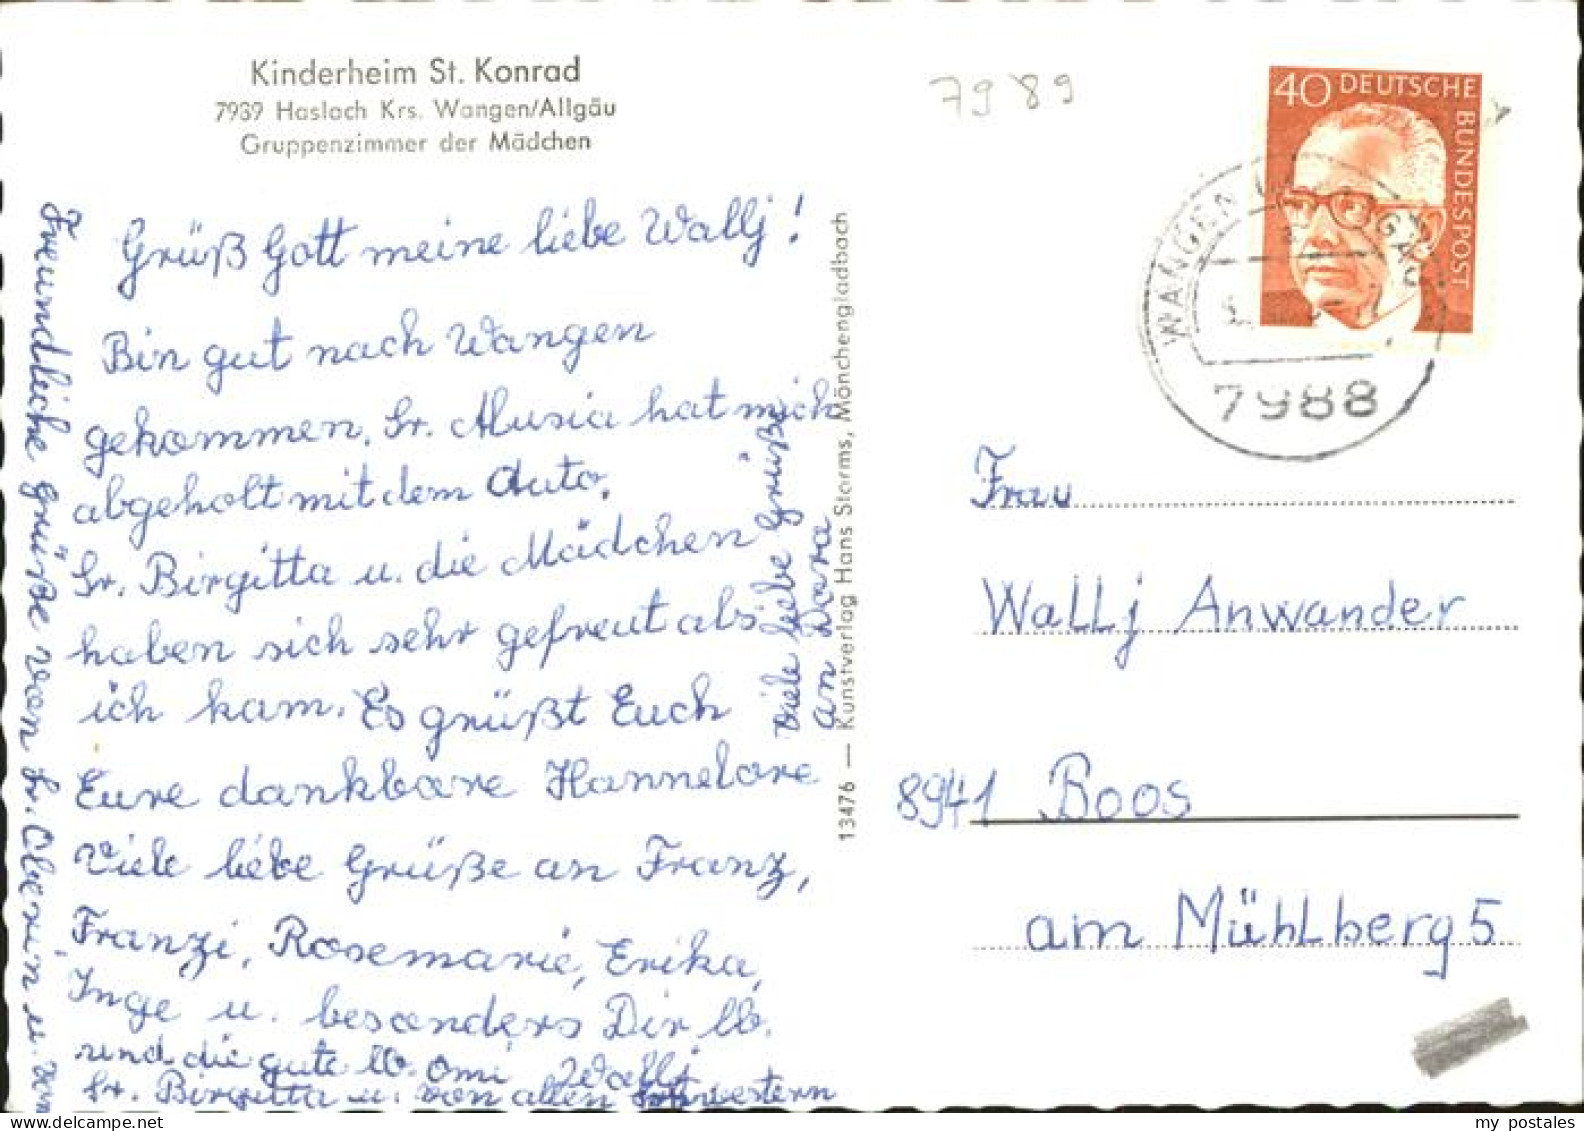 Kinderheim St. Konrad
7989 Haslach Krs. Wangen/Allgäu
Gruppenzimmer der Mädchen
7989
40 DEUTSCHE BUNDESPOST
WANGEN
7988
Grüß Gott meine liebe Wallj!
Bin gut nach Wangen
gekommen. Sr. Musia hat mich
abgeholt mit dem Auto.
Sr. Birgitta u. die Mädchen
haben sich sehr gefreut als
ich kam. Es grüßt Euch
Eure dankbare Hannelore
Viele liebe Grüße an Franz,
Franzi, Rosemarie, Erika,
Inge u. besonders Dir lb.
und die gute lb. Omi Wallj
Freundliche Grüße von Sr. Oberin u. von
Sr. Birgitta u. von allen Schwestern
Viele liebe Grüße
an Dora
13476 — Kunstverlag Hans Storms, Mönchengladbach
Frau
Wallj Anwander
8941 Boos
am Mühlberg 5
my postales